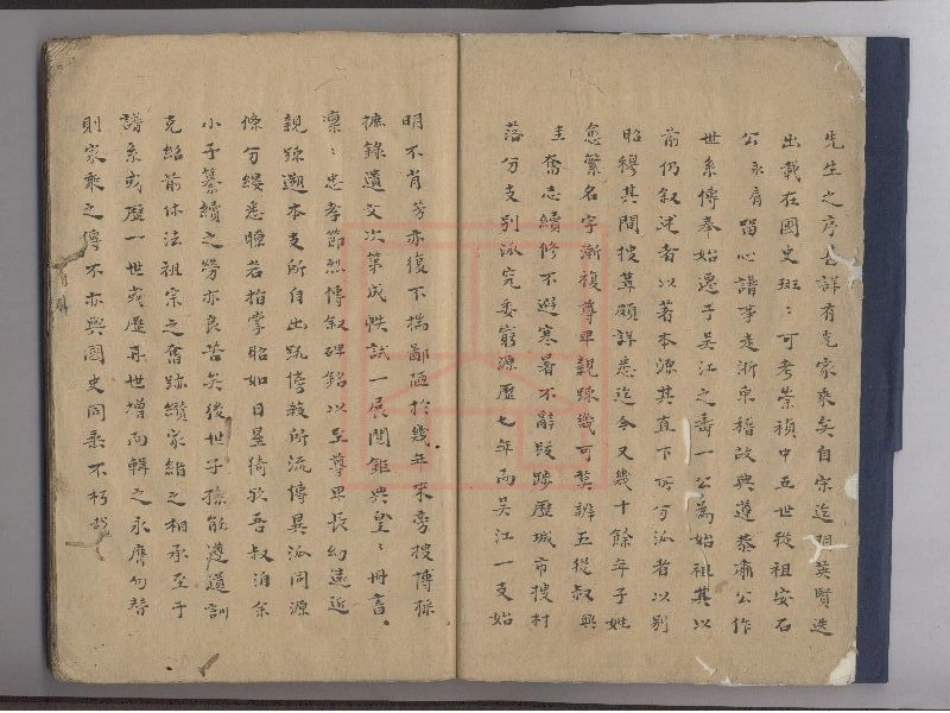 先生之序甚詳有克家乘矣自宋迄明英賢迭
出載在國史班：可考崇禎中五世從祖安石
公永肩留心譜事走浙東稽故典遵恭肅公作
世系傳奉始遷于吳江之壽一公為始祖其以
前仍叙述者以著本源其直下所分派者以别
昭穆其間搜葺頗詳悉迄今又幾十餘年子姓
愈繁名字漸複尊卑親踈幾可莫辨五從叔興
圭奮志續修不避寒暑不辭跋踄歷城市搜村
落分支别派究委窮源歷七年而吳江一支始
明不肖芳亦復不揣鄙陋於幾年來旁搜博採
摭錄遺文次第成帙試一展閱鉅典皇：冊書
凛：忠孝節烈傳叙碑銘以至尊卑長幼遠近
親踈遡本支所自出晰傍枝所流傳異派同源
條分縷悉瞭若指掌昭如日星猗歟吾叔洎余
小子纂續之勞亦良苦矣後世子孫能遵遺訓
克紹前休法祖宗之奮跡纘家緒之相承至于
譜系或歷一世或歷再世增而輯之永膺勿替
則家乘之傳不亦與國史同垂不朽哉